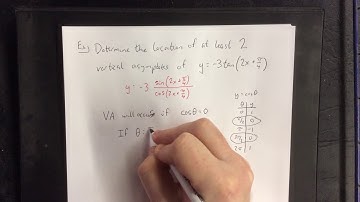 Ex) Determine the location of at least 2
vertical asymptotes of y = -3 tan(2x + π/4)
y = -3 sin(2x + π/4) / cos(2x + π/4)
VA will occur if cosθ = 0
If θ =
y = cosθ
θ | y
0 | 1
π/2 | 0
π | -1
3π/2 | 0
2π | 1